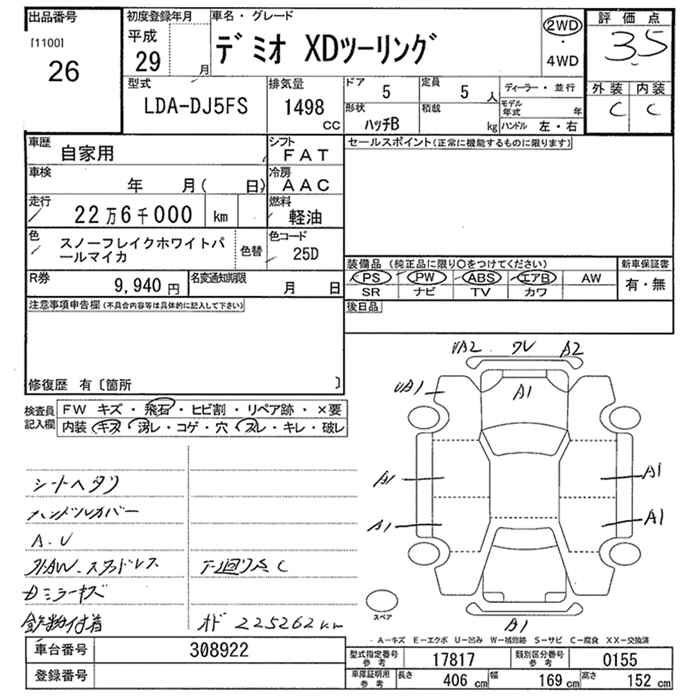 出品番号
[1100]
26
初度登録年月
平成
29 月
車名・グレード
デミオ XDツーリング
2WD
・
4WD
評価点
3.5
外装 内装
C C
型式
LDA-DJ5FS
排気量
1498
cc
ドア
5
定員
5 人
形状
ハッチB
積載
kg
ディーラー・並行
モデル
年式 年
ハンドル 左・右
車歴
自家用
シフト
FAT
車検
年 月( 日)
冷房
AAC
走行
22万6千000 km
燃料
軽油
色
スノーフレイクホワイトパ
ールマイカ
色替
色コード
25D
R券
9,940 円
名変通知期限
月 日
セールスポイント(正常に機能するものに限ります)
装備品 (純正品に限り○をつけてください)
PS PW ABS エアB AW
SR ナビ TV カワ
新車保証書
有・無
後日品
注意事項申告欄(不具合内容等は具体的に記入して下さい)
修復歴 有〔箇所 〕
検査員
記入欄
FW キズ・飛石・ヒビ割・リペア跡・×要
内装 キズ・汚レ・コゲ・穴・スレ・キレ・破レ
シートヘタリ
ハンドルカバー
A.U
スタッドレス
Dミラーキズ
鉄粉付着
下廻り点C
オド 225262km
UA2 ワレ A2
UA1 A1
A1 A1
A1 A1
A1
スペア
A-キズ E-エクボ U-凹み W-補修跡 S-サビ C-腐食 XX-交換済
車台番号 308922
登録番号
型式指定番号
参考
17817
類別区分番号
参考
0155
車庫証明用
参考
長さ 406 cm 幅 169 cm 高さ 152 cm